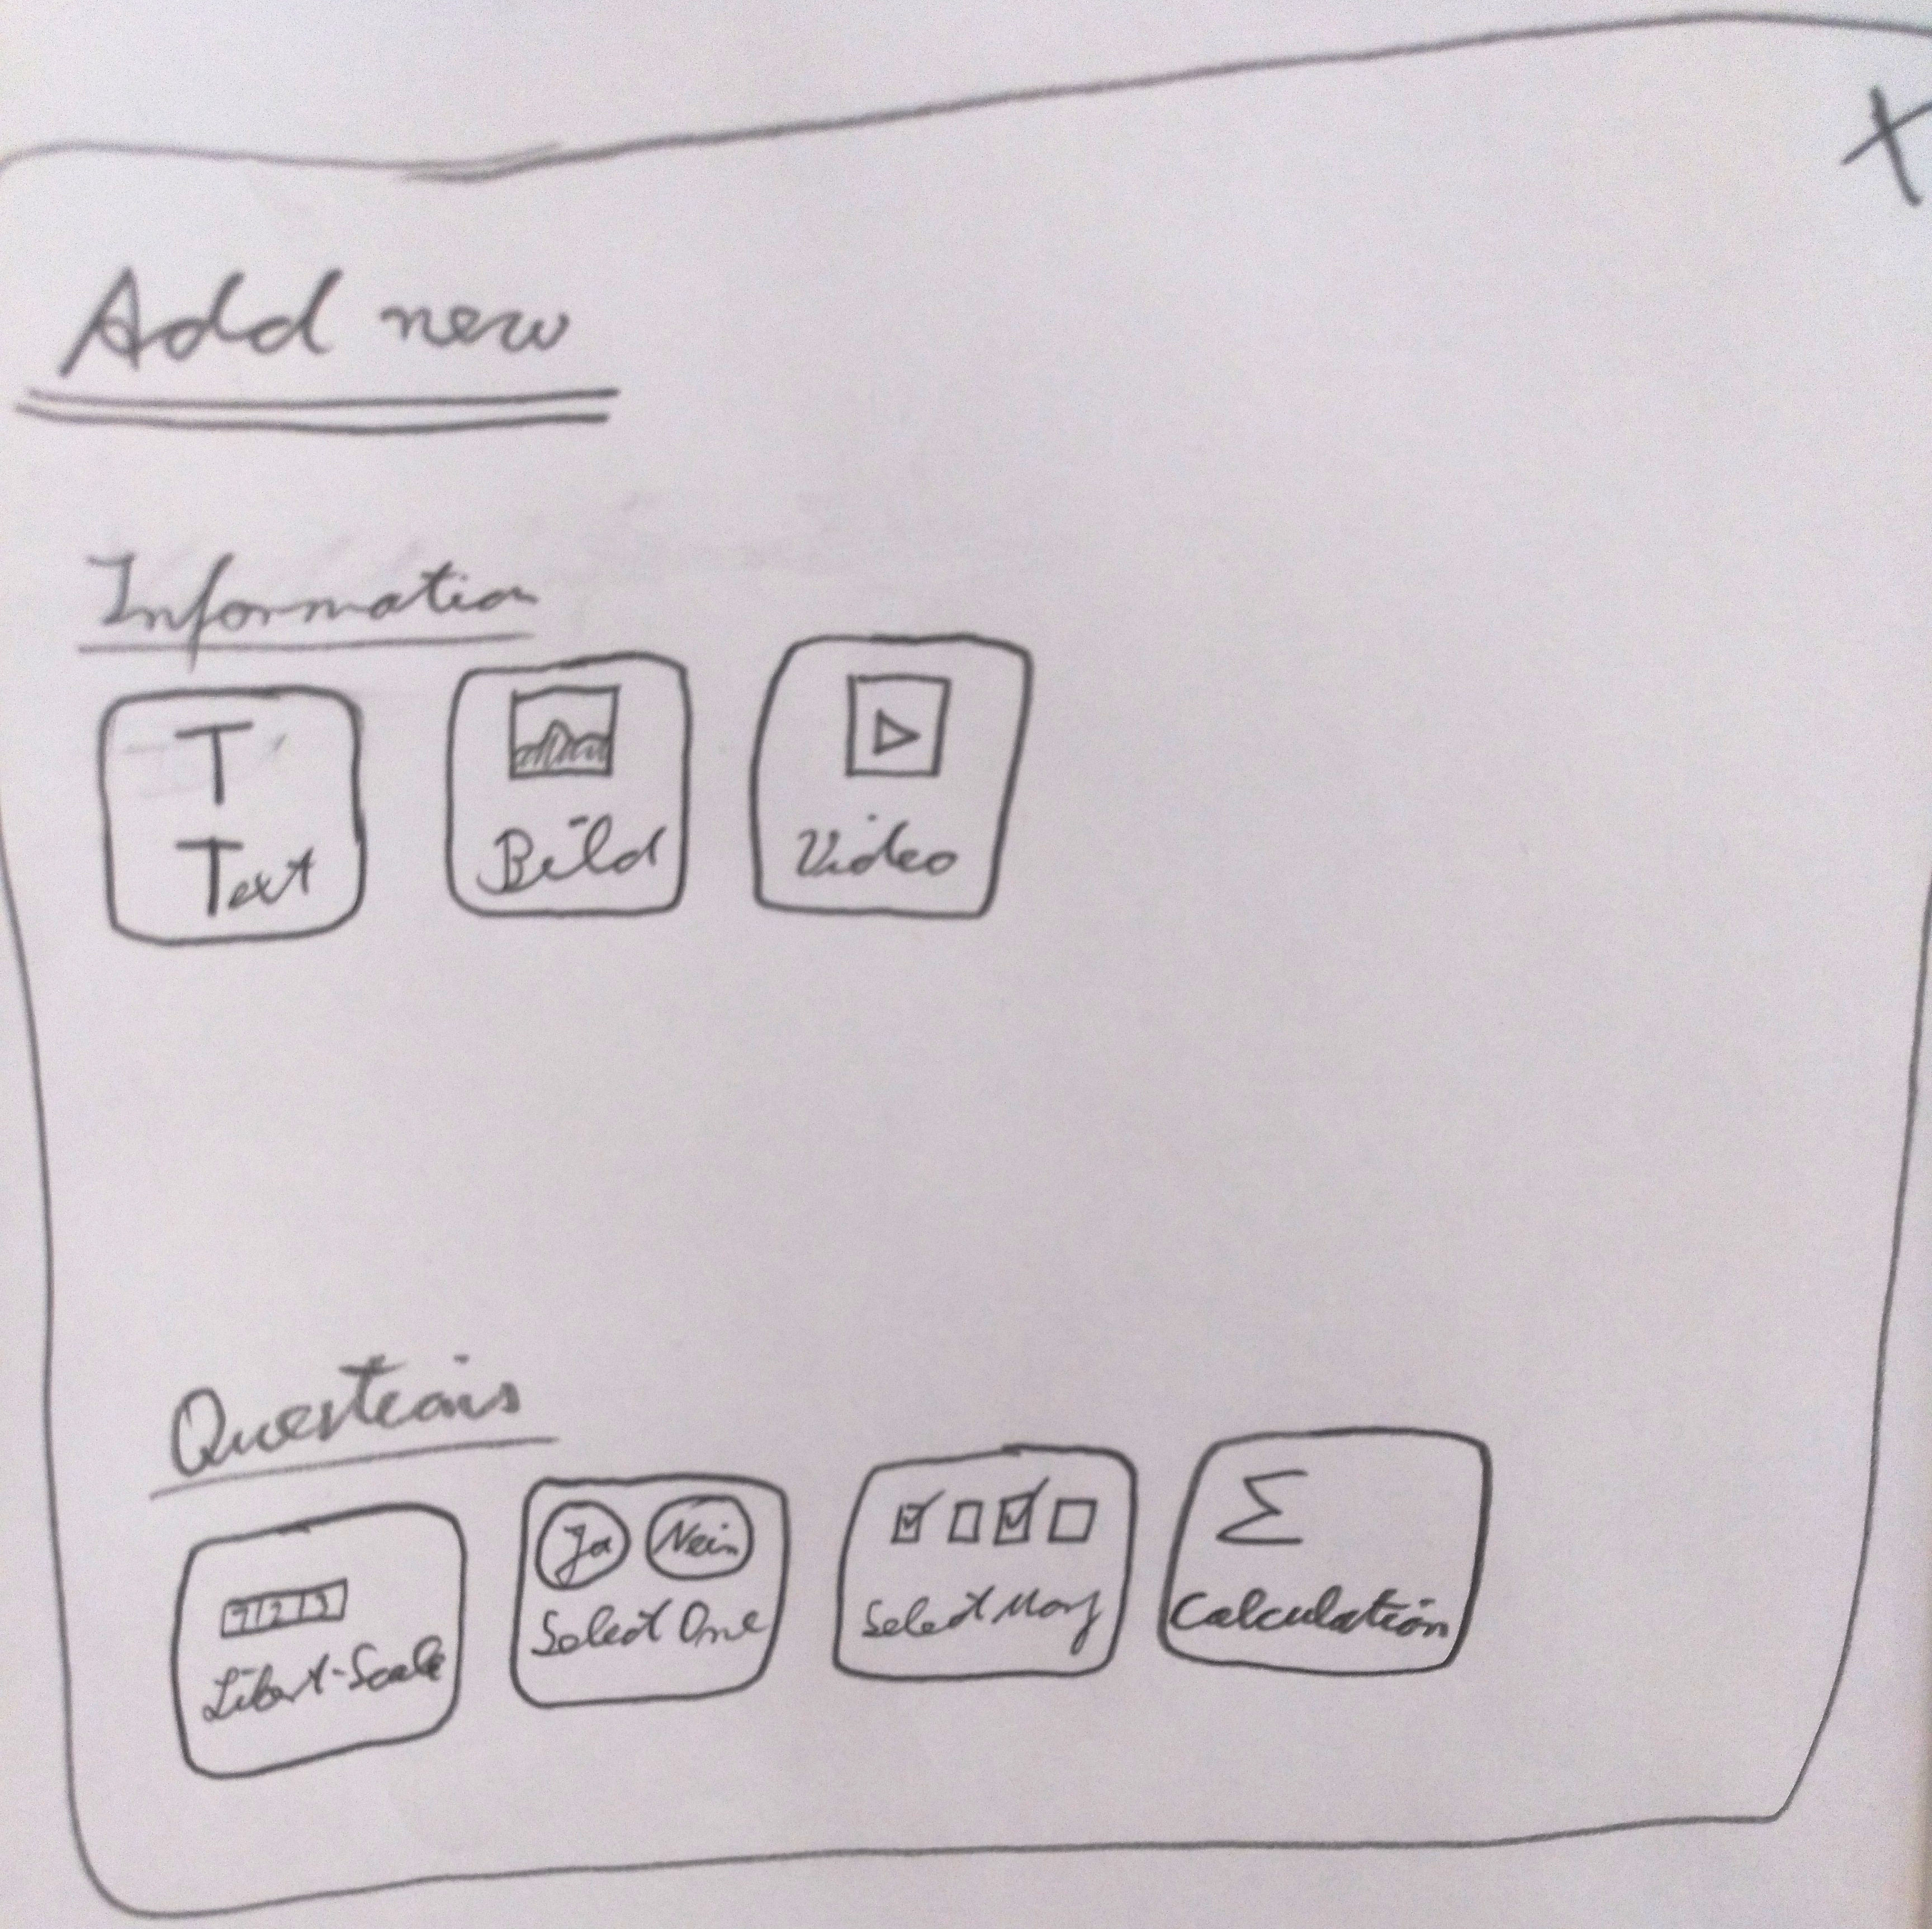 X
Add new
Information
T
Text
Bild
Video
Questions
1 2 3
Likert-Scale
Ja Nein
Select One
Select Many
Σ
Calculation